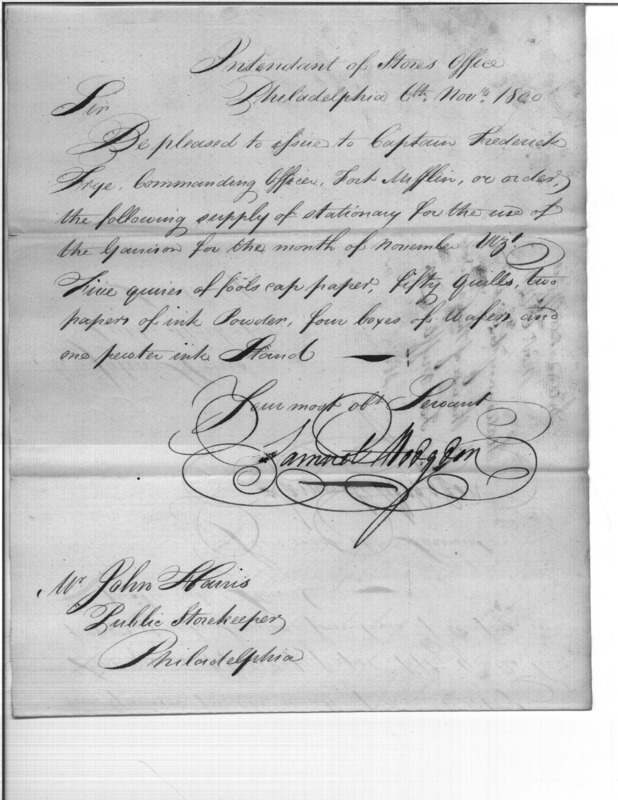 Intendant of Stores Office
Philadelphia 6th. Novr. 1800
Sir
Be pleased to issue to Captain Frederick
Frye, Commanding Officer, Fort Mifflin, or order,
the following supply of stationary for the use of
the Garrison for the month of November Vizt.
Five quires of foolscap paper, fifty Quills, two
papers of ink Powder, four boxes of Wafers, and
one pewter ink Stand
Your most obt. Servant
Samuel Hodgdon
Mr John Harris
Public Storekeeper
Philadelphia